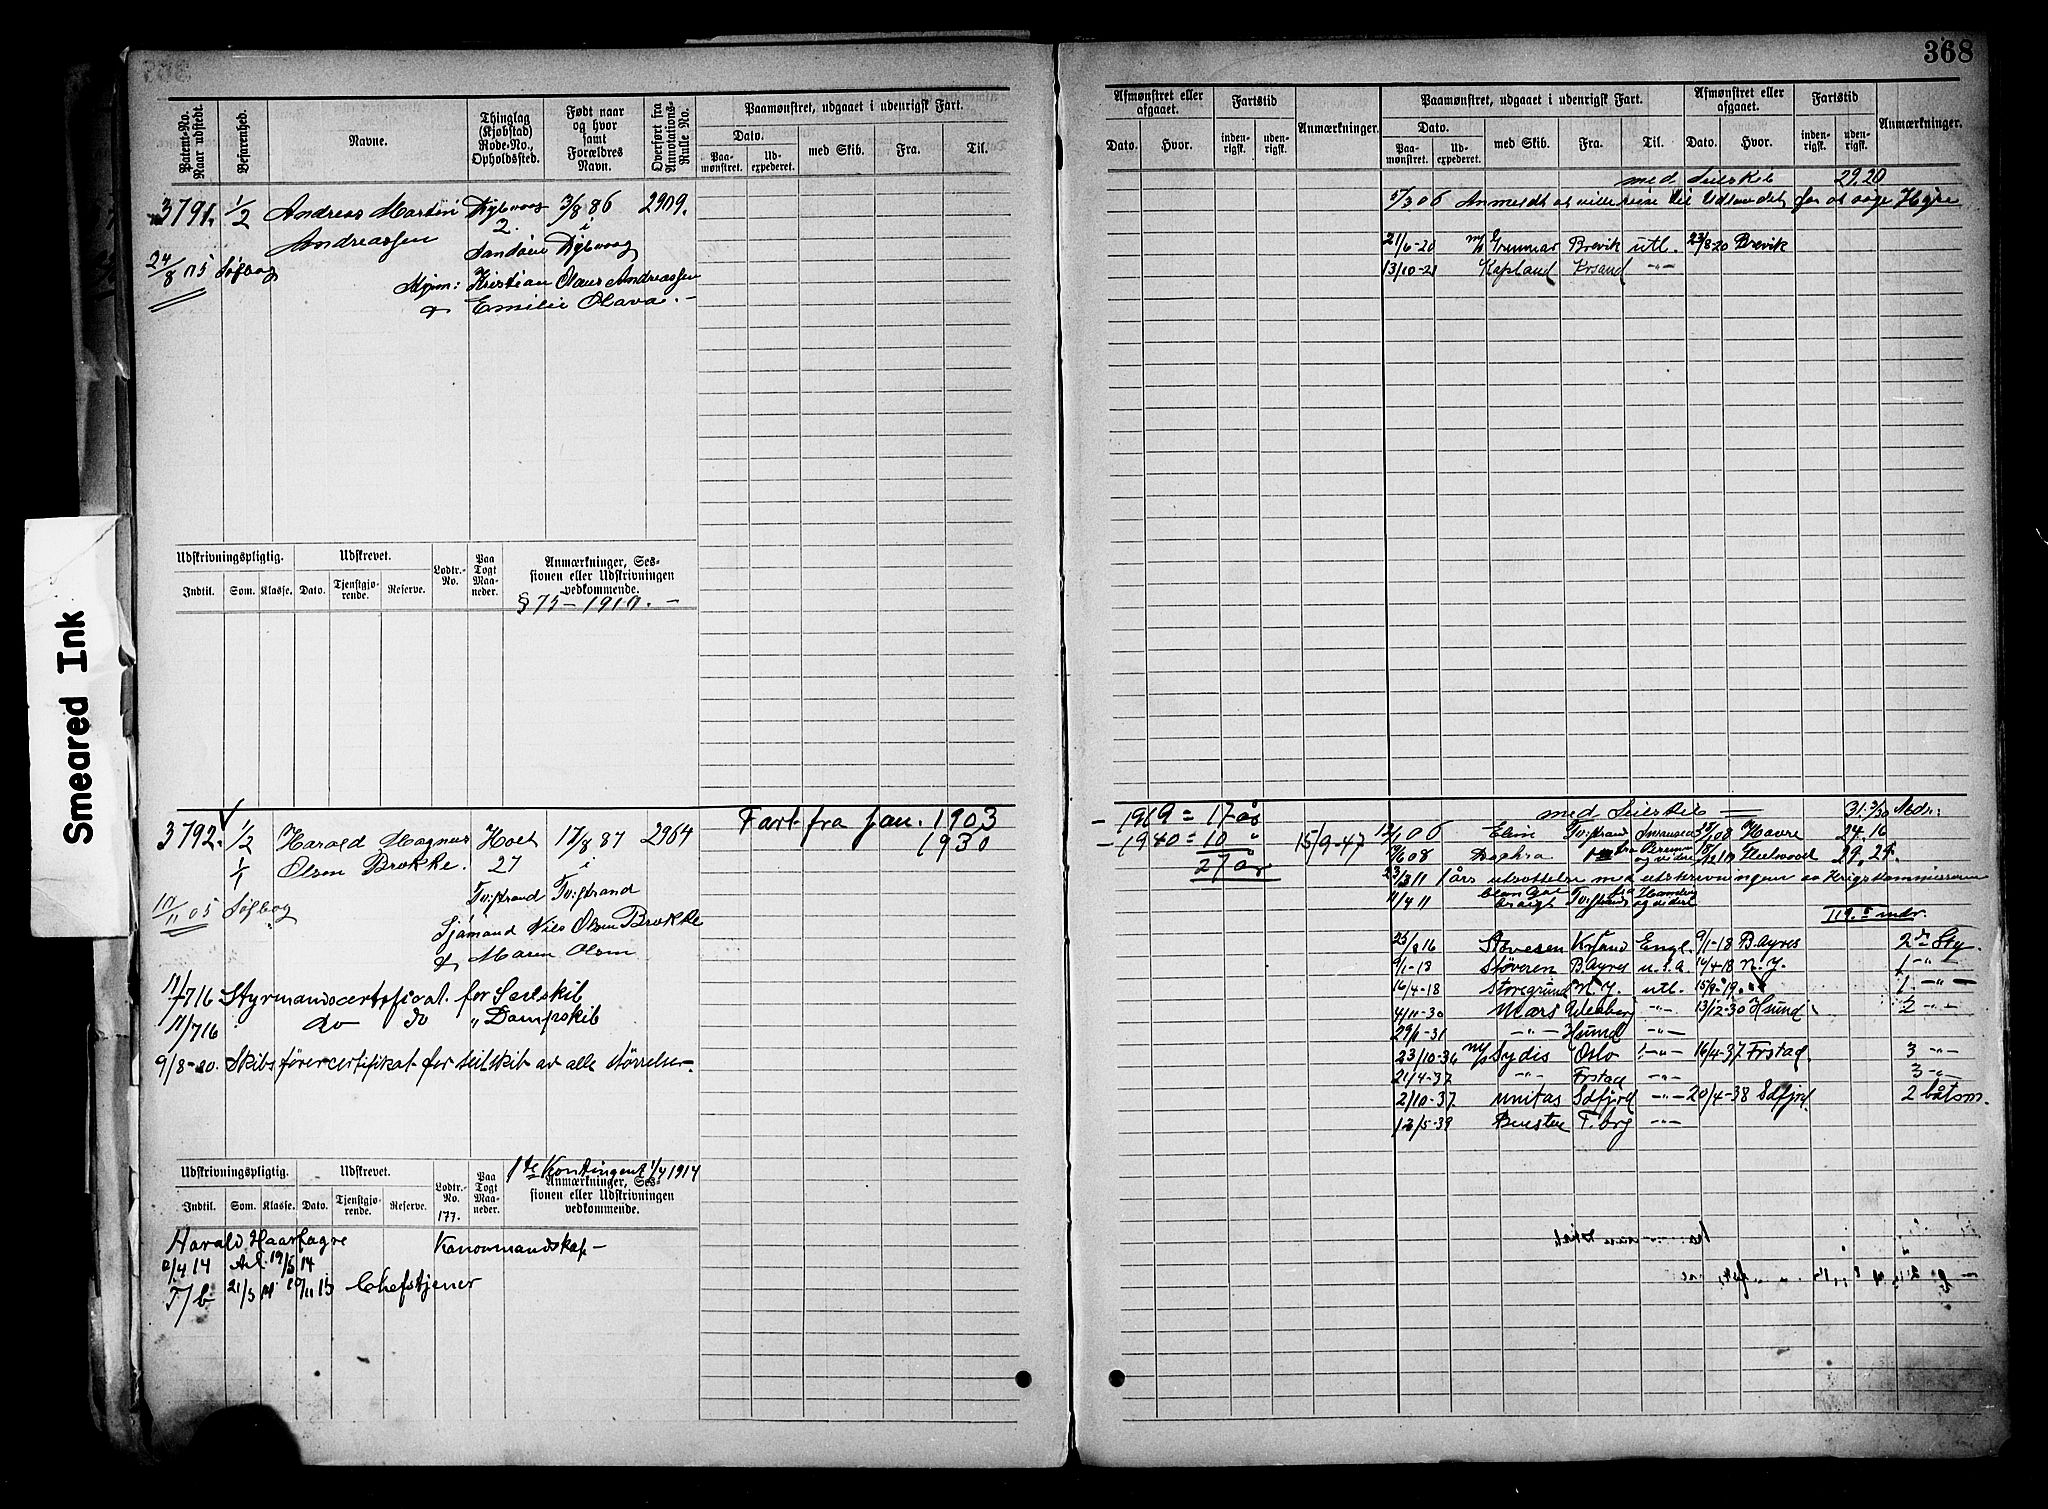 368
Patent-No. Naar udstedt.
Befarenhed.
Navne.
Thinglag (Kjøbstad) Rode-No., Opholdssted.
Født naar og hvor samt Forældres Navn.
Overført fra Annotations-Rulle No.
Paamønstret, udgaaet i udenrigsk Fart.
Dato.
Paamønstret.
Udexpederet.
med Skib.
Fra.
Til.
Afmønstret eller afgaaet.
Dato.
Hvor.
Fartstid
indenrigsk.
udenrigsk.
Anmærkninger.
Paamønstret, udgaaet i udenrigsk Fart.
Dato.
Paamønstret.
Udexpederet.
med Skib.
Fra.
Til.
Afmønstret eller afgaaet.
Dato.
Hvor.
Fartstid
indenrigsk.
udenrigsk.
Anmærkninger.
3791. 1/2 Andreas Martin Dybvaag 3/8 86 2909.
Andreassen 2. i
Sandøen Dybvaag
24/8 05 Søfbog
Kristian Olaus Andreassen
& Emilie Olava. -
med Seilskib 29.20
5/3 06 Anmeldt at ville reise til Udlandet for at søge Hyre
21/6-20 Gunnar Brevik utl. 23/8 20 Brevik
13/10-21 Kapland Krsand -"-
Udskrivningspligtig.
Udskrevet.
Lodtr.-No.
Paa Togt Maaneder.
Anmærkninger, Sessionen eller Udskrivningen vedkommende.
Indtil. Som. Klasse. Dato. Tjenstgjørende. Reserve.
§ 75 - 1910. -
3792. 1/2 Harald Magnus Holt 17/8 87 2964
1/1 Olsen Brokke. 27 i
Tvedestrand Tvedestrand
10/11 05 Søfbog
Sjømand Nils Olsen Brokke
& Maren Olsen
11/7 16 Styrmandscertificat for Seilskib
11/7 16 do do " Dampskib
9/8-20. Skibsførercertifikat for seilskib av alle størrelser.
Fart fra Jan. 1903
1930
- 1919 = 17 år
- 1940 = 10 "
27 år
15/9-47
med Seilskib 31.3/30 Mdr:
12/1 06
08 Havre 24.16
19/6 08 Fleetwood 29.29.
23/3 11 1 års utsættelse med utskrivningen av Krigskommissæren
11/4 11
119.5 mdr.
25/8 16 Støveren Krsand Engl. 9/1-18 B.Ayres 2den Sty.
9/1-18 Støveren B.Ayres U.S.A. 14/4 18 N.Y. 1 -"-
16/4-18 Storegrund N.Y. utl. 15/9-19 1. -"-
4/11-30 Mars -"- 13/12-30 Hsund 2 -"-
29/1-31 -"- Hsund -"-
23/10-36 m/s Sydis Oslo -"- 16/4-37 Frstad. 3 -"-
21/4-37 -"- Frstad -"- 3 -"-
2/10-37 Unitas Sdfjrd -"- 20/4-38 Sdfjrd. 2 båtsm.
12/5-39 T.brg -"-
1ste Kontingent 1/4 1914
Udskrivningspligtig.
Udskrevet.
Lodtr.-No. 177.
Paa Togt Maaneder.
Anmærkninger, Sessionen eller Udskrivningen vedkommende.
Indtil. Som. Klasse. Dato. Tjenstgjørende. Reserve.
Harald Haarfagre Kanonmandskap -
2/4 14 Avl. 19/5 14
T/b 21/5 14 10/11 15 Chefstjener
Smeared Ink